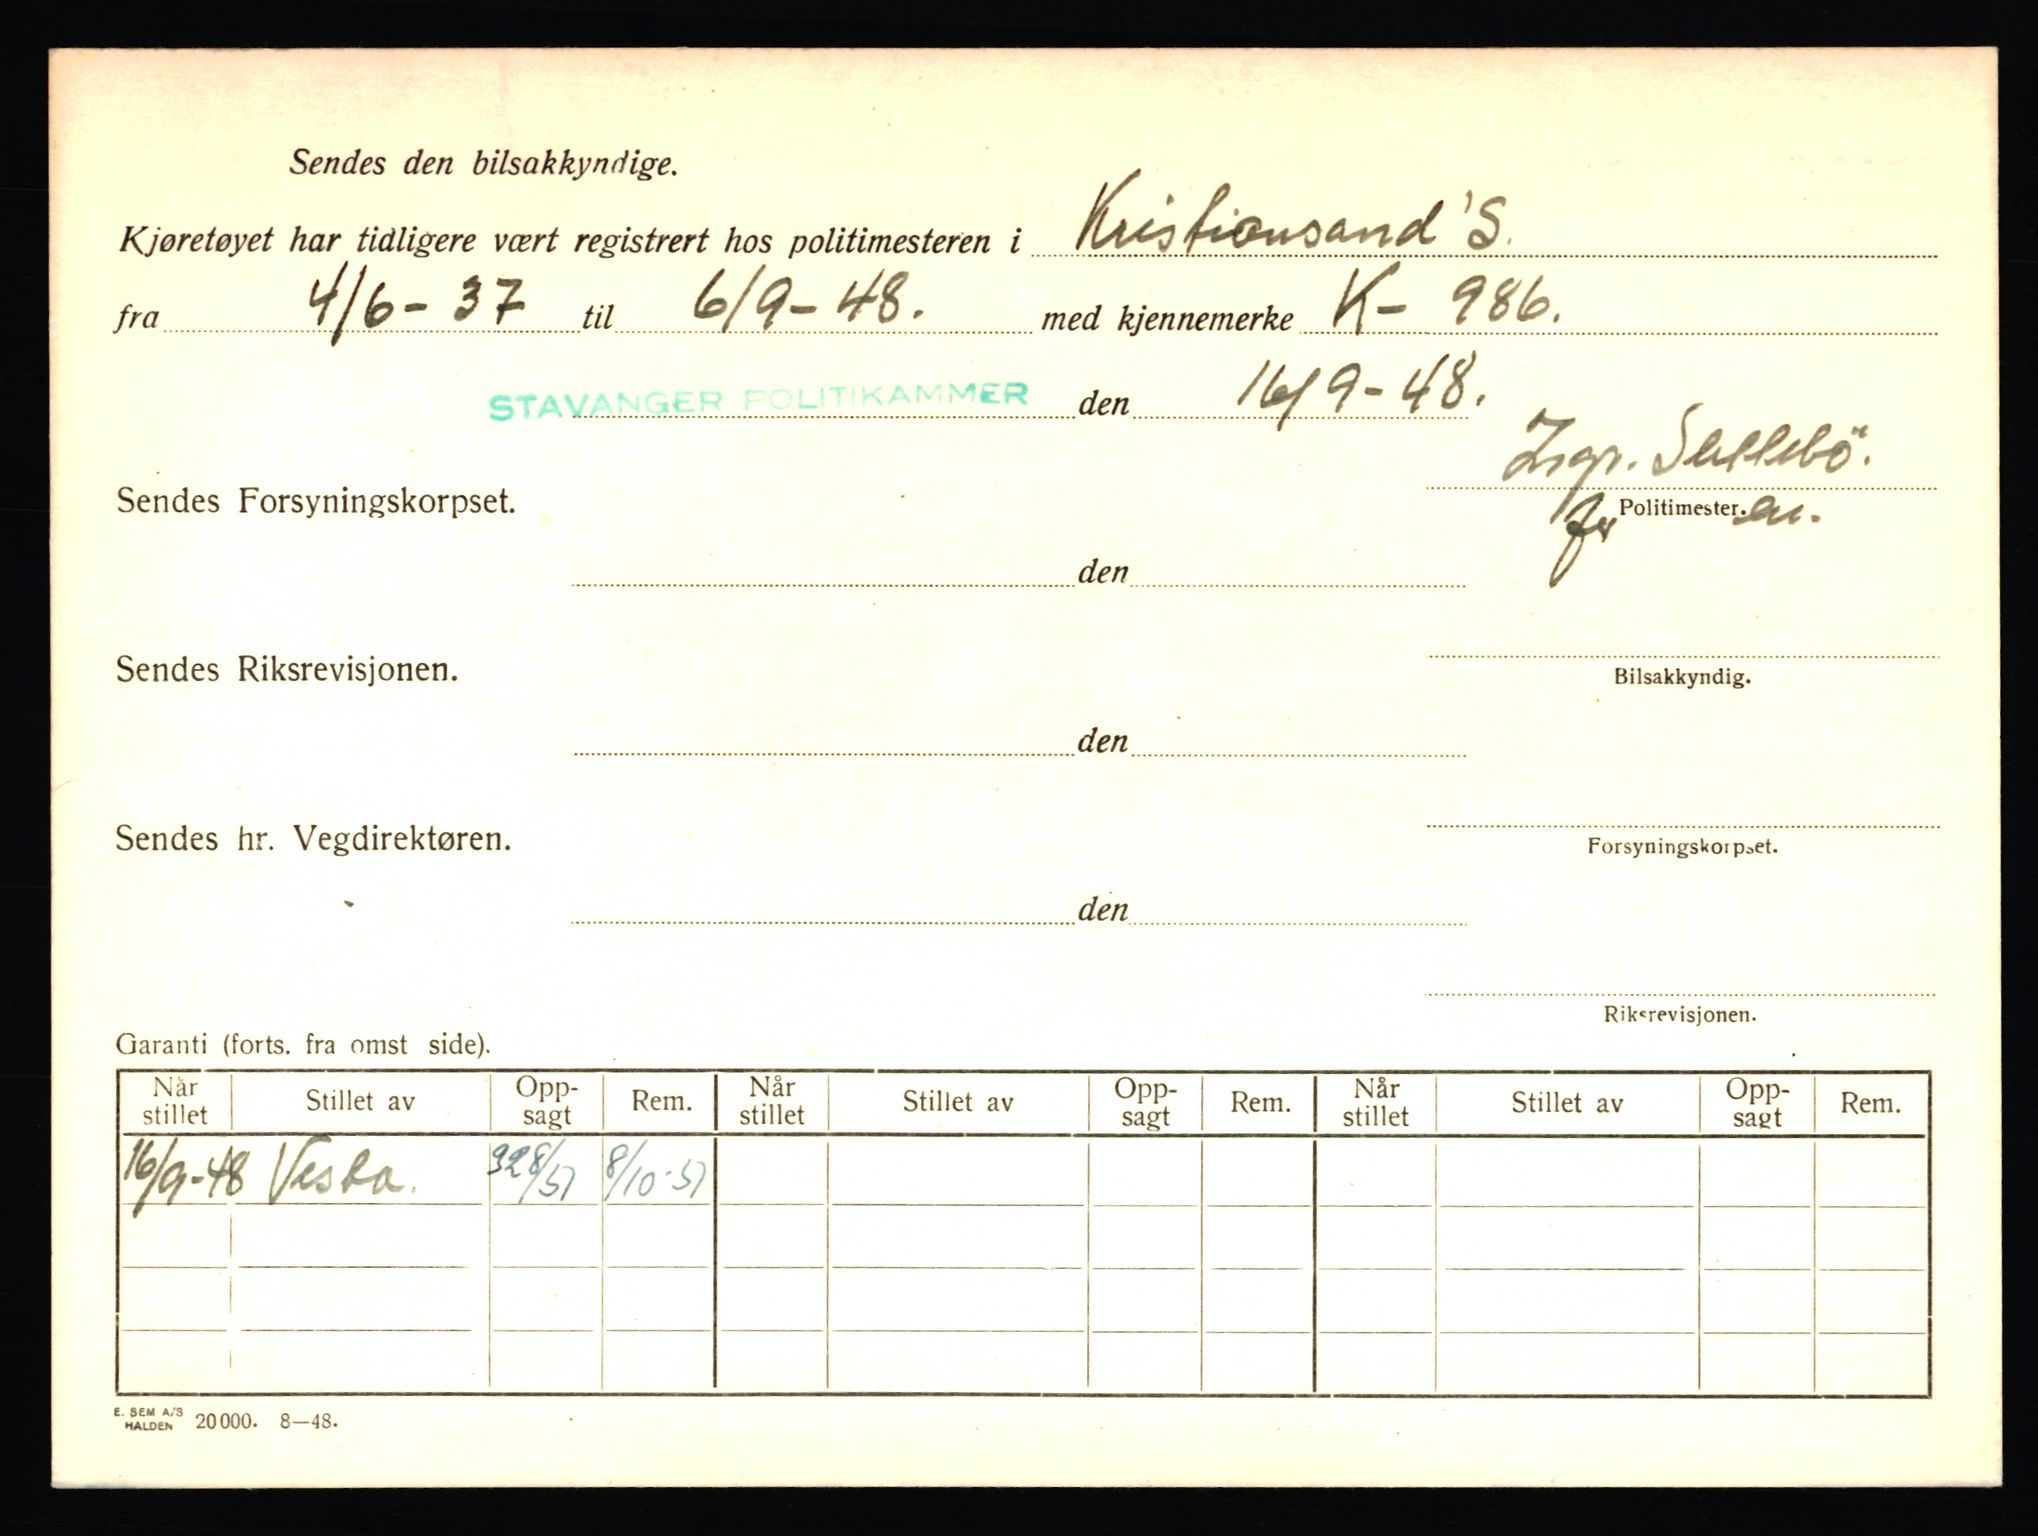 Sendes den bilsakkyndige.
Kjøretøyet har tidligere vært registrert hos politimesteren i Kristiansand 'S.
fra 4/6 - 37 til 6/9 - 48. med kjennemerke K - 986.
STAVANGER POLITIKAMMER den 16/9 - 48.
Sendes Forsyningskorpset.
Politimester.
den
Sendes Riksrevisjonen.
Bilsakkyndig.
den
Sendes hr. Vegdirektøren.
Forsyningskorpset.
den
Riksrevisjonen.
Garanti (forts. fra omst side).
Når stillet Stillet av Opp-sagt Rem. Når stillet Stillet av Opp-sagt Rem. Når stillet Stillet av Opp-sagt Rem.
16/9-48 Vesta. 8/10-51
E. SEM A/S
HALDEN 20000. 8—48.